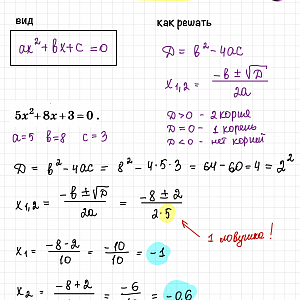 вид
ax² + bx + c = 0
как решать
D = b² - 4ac
x₁,₂ = (-b ± √D) / 2a
D > 0 - 2 корня
D = 0 - 1 корень
D < 0 - нет корней
5x² + 8x + 3 = 0.
a = 5 b = 8 c = 3
D = b² - 4ac = 8² - 4·5·3 = 64 - 60 = 4 = 2²
x₁,₂ = (-b ± √D) / 2a = (-8 ± 2) / 2·5
1 ловушка!
x₁ = (-8 - 2) / 10 = -10 / 10 = -1
x₂ = (-8 + 2) / 10 = -6 / 10 = -0,6